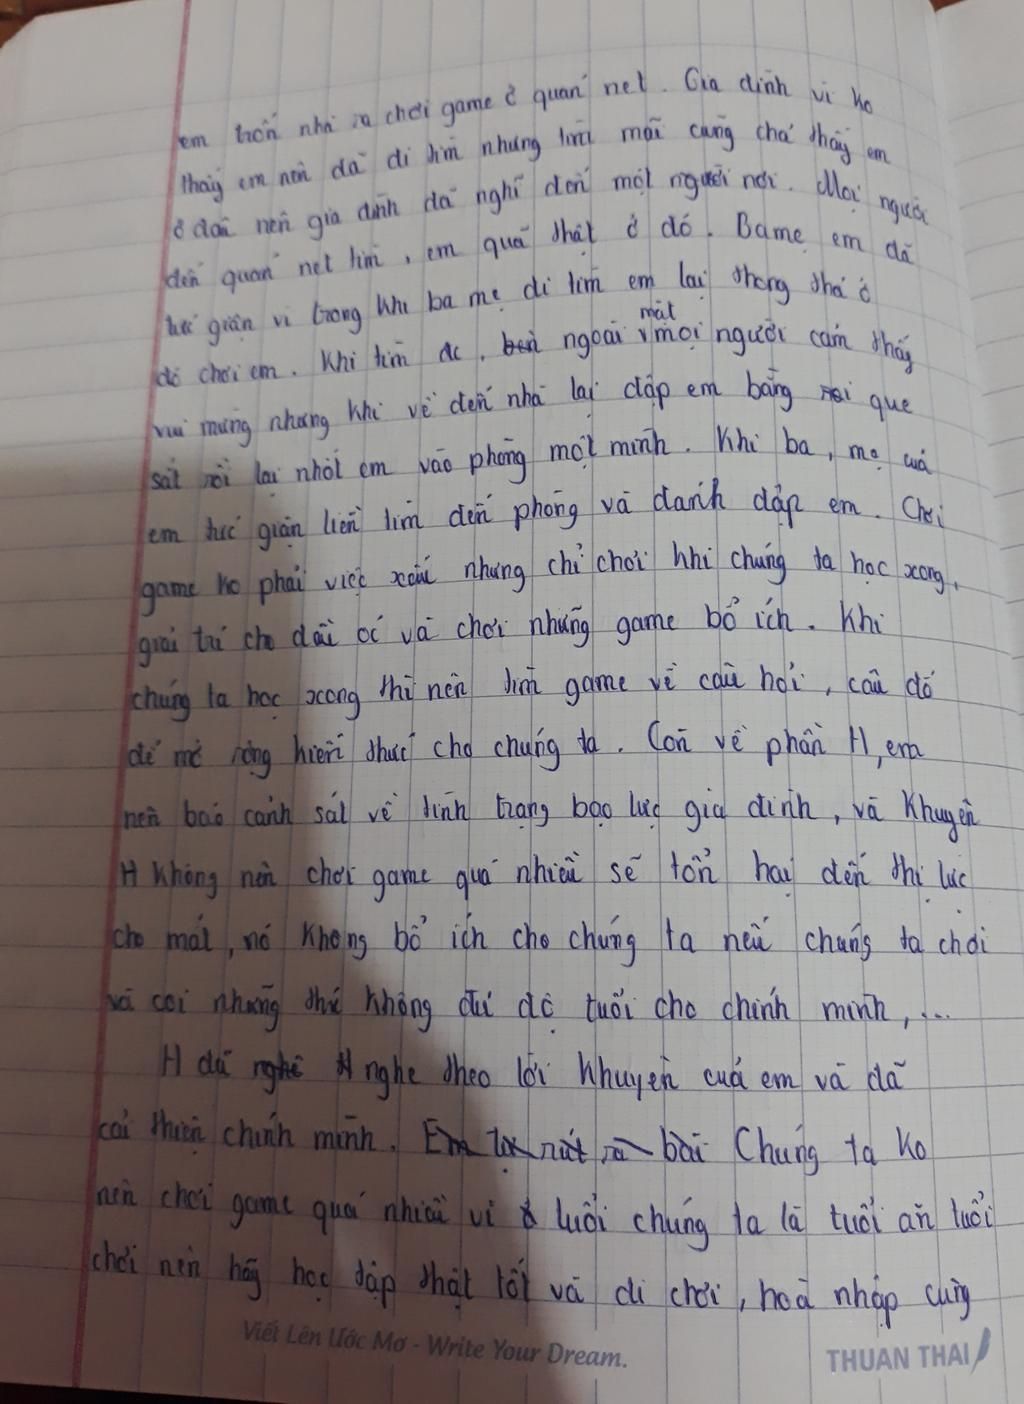 em trốn nhà ra chơi game ở quán net. Gia đình vì ko
thấy em nên đã đi tìm nhưng tìm mãi cũng chả thấy em
ở đâu nên gia đình đã nghĩ đến một người nơi. Mọi người
đến quán net tìm, em quả thật ở đó. Ba mẹ em đã
tức giận vì trong khi ba mẹ đi tìm em lại thong thả ở
đó chơi em. Khi tìm đc, bên ngoài mặt mọi người cảm thấy
vui mừng nhưng khi về đến nhà lại đập em bằng roi que
sắt rồi lại nhốt em vào phòng một mình. Khi ba, mẹ của
em tức giận liền tìm đến phòng và đánh đập em. Chơi
game ko phải việc xấu nhưng chỉ chơi khi chúng ta học xong,
giải trí cho đầu óc và chơi những game bổ ích. Khi
chúng ta học xong thì nên tìm game về câu hỏi, câu đố
để mở rộng kiến thức cho chúng ta. Còn về phần H, em
nên báo cảnh sát về tình trạng bạo lực gia đình, và khuyên
H không nên chơi game quá nhiều sẽ tổn hại đến thị lực
cho mắt, nó không bổ ích cho chúng ta nếu chúng ta chơi
và coi những thứ không đủ độ tuổi cho chính mình,...
H đã nghe H nghe theo lời khuyên của em và đã
cải thiện chính mình. Em rút ra bài Chúng ta ko
nên chơi game quá nhiều vì ở tuổi chúng ta là tuổi ăn tuổi
chơi nên hãy học tập thật tốt và đi chơi, hoà nhập cùng
Viết Lên Ước Mơ - Write Your Dream.
THUAN THAI